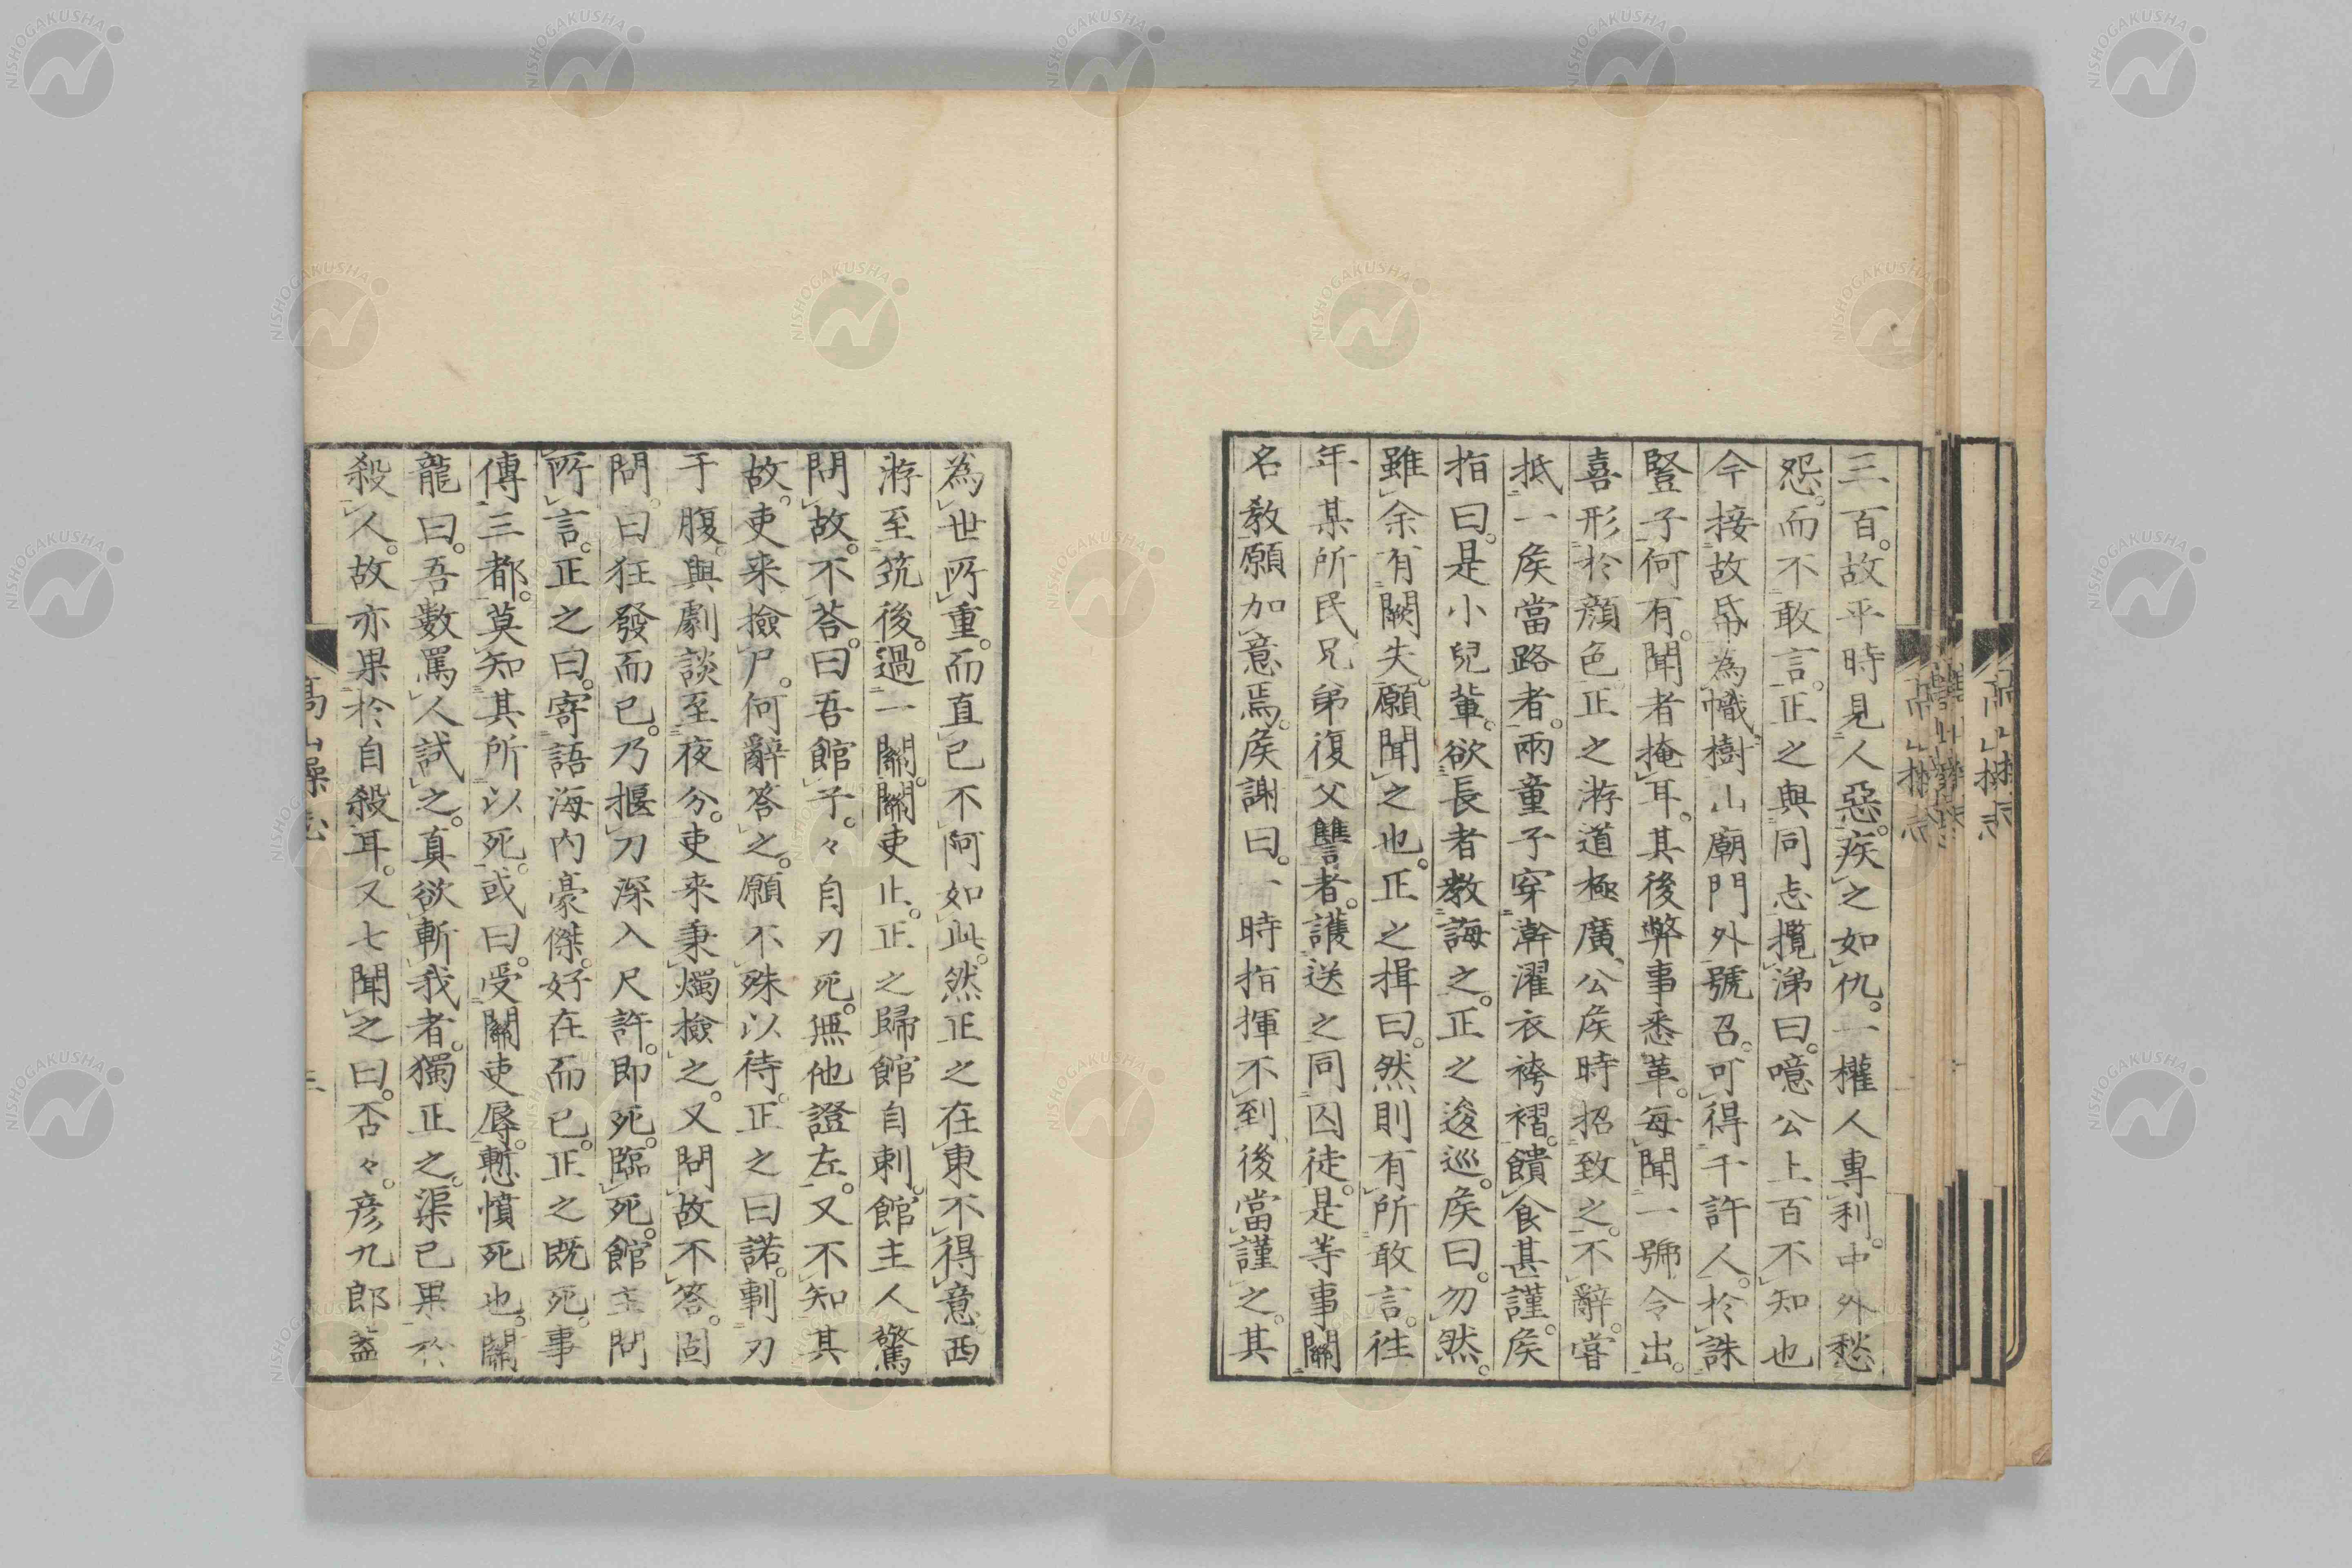 三百。故平時見人惡。疾之如仇。一權人專利。中外愁
怨。而不敢言。正之與同志攬涕曰。噫公上百不知也
今接故帋為幟。樹山廟門外號召。可得千許人。於誅
豎子何有。聞者掩耳。其後弊事悉革。每聞一號令出。
喜形於顏色正之游道極廣、公侯時招致之。不辭。嘗
抵一侯當路者。兩童子穿澣濯衣袴褶。饋食甚謹。侯
指曰。是小兒輩。欲長者教誨之。正之逡巡。侯曰。勿然。
雖余有闕失。願聞之也。正之揖曰。然則有所敢言。往
年某所民兄弟復父讐者。護送之同囚徒。是等事關
名教願加意焉。侯謝曰。一時指揮不到、後當謹之。其
為世所重。而直已不阿如此。然正之在東不得意。西
游至筑後。過一關。關吏止。正之歸館自刺。館主人驚
問故。不荅。曰吾館子。々自刃死。無他證左。又不知其
故。吏来撿尸。何辭答之。願不殊以待。正之曰諾。剚刃
于腹。與劇談至夜分。吏来秉燭撿之。又問故不答。固
問。曰狂發而已。乃揠刀深入尺許。即死。臨死。館主問
所言。正之曰。寄語海内豪傑。好在而已。正之既死。事
傳三都。莫知其所以死。或曰。受關吏辱。慙憤死也。關
龍曰。吾數罵人試之。真欲斬我者。獨正之。渠已果於
殺人。故亦果於自殺耳。又七聞之曰。否々。彦九郎盖
高山操志
三